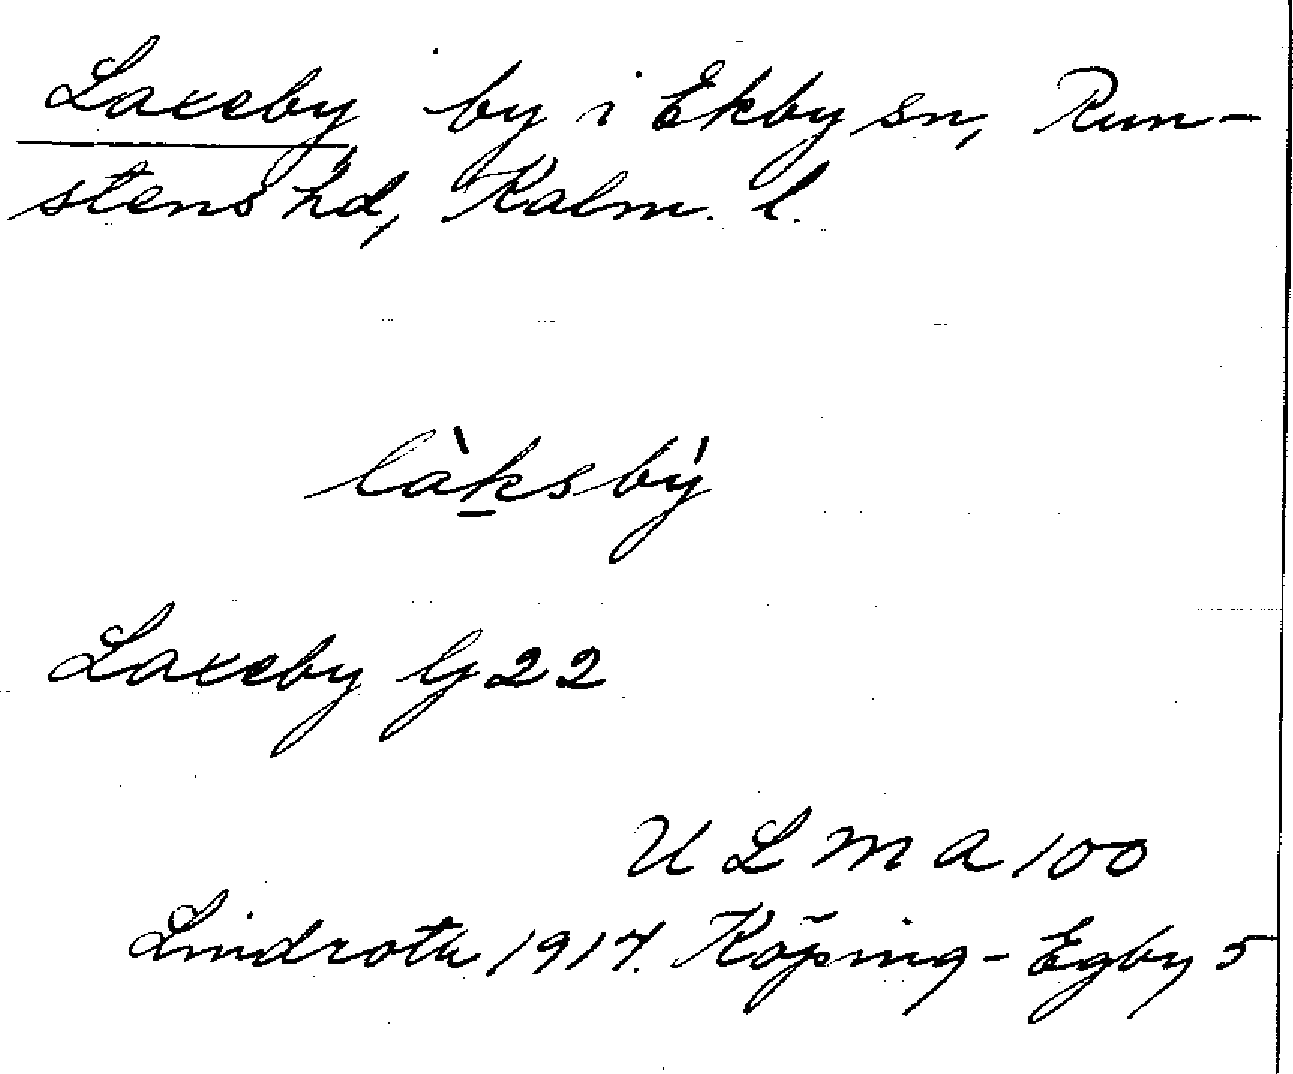 Laxeby by i Ekby sn, Run-
stens hd, Kalm. l.
làksbý
Laxeby G 22
ULMA 100
Lindroth 1917. Köping-Egby 5